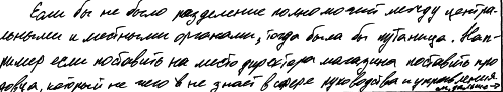 Если бы не было разделение полномочий между центра-
льными и местными органами, тогда была бы путаница. Нап-
ример если поставить на место директора магазина поставить про
довца, который не чего в не знает в сфере руководства и управления